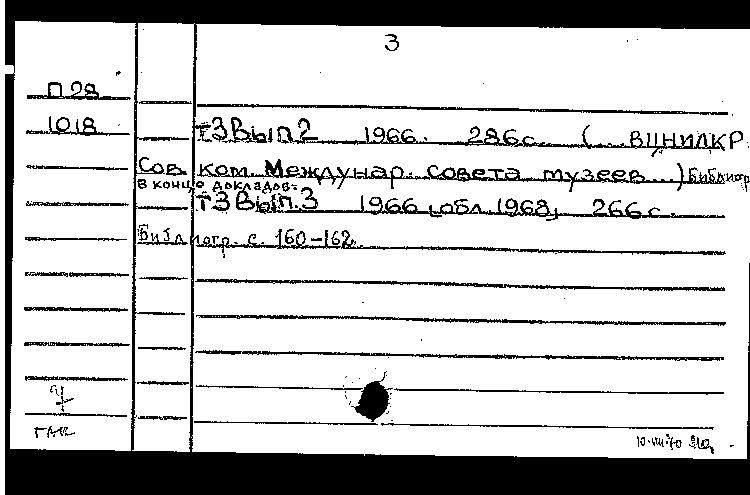 3
П28
1018
т3 Вып.2 1966. 286с. (...ВЦНИЛКР.
Сов. ком. Междунар. совета музеев...) Библиогр.
в конце докладов.
т3 Вып.3 1966 [обл. 1968], 266с.
Библиогр. с. 160-162.